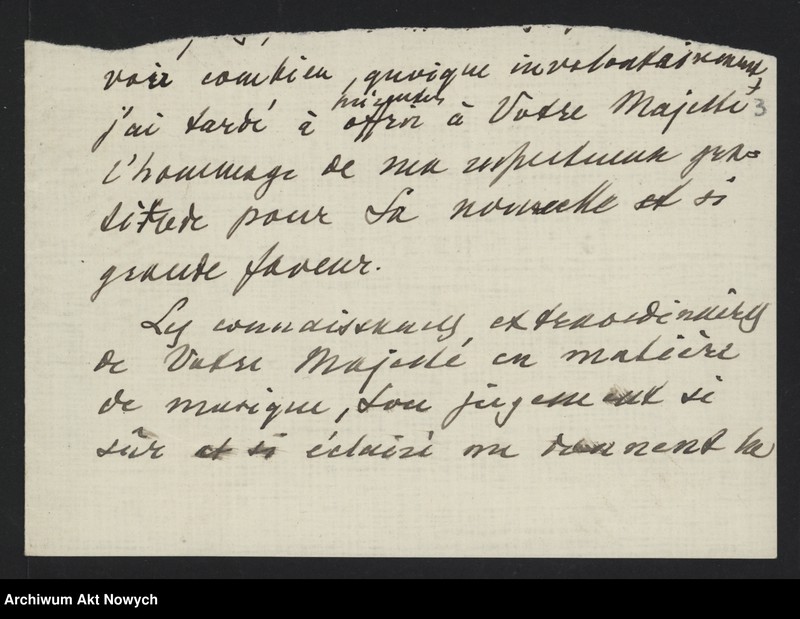 voir combien, quoique involontairement,
j'ai tardé à offrir à Votre Majesté 3
présenter
l'hommage de ma respectueuse gra=
titude pour Sa nouvelle et si
grande faveur.
Les connaissances extraordinaires
de Votre Majesté en matière
de musique, Son jugement si
sûr et si éclairé me donnent la
Archiwum Akt Nowych